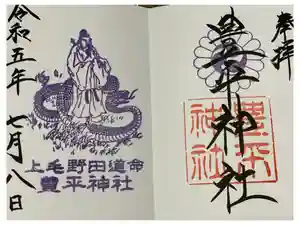 奉拝
豊平神社
豊平
神社
令和五年 七月八日
上毛野田道命
豊平神社